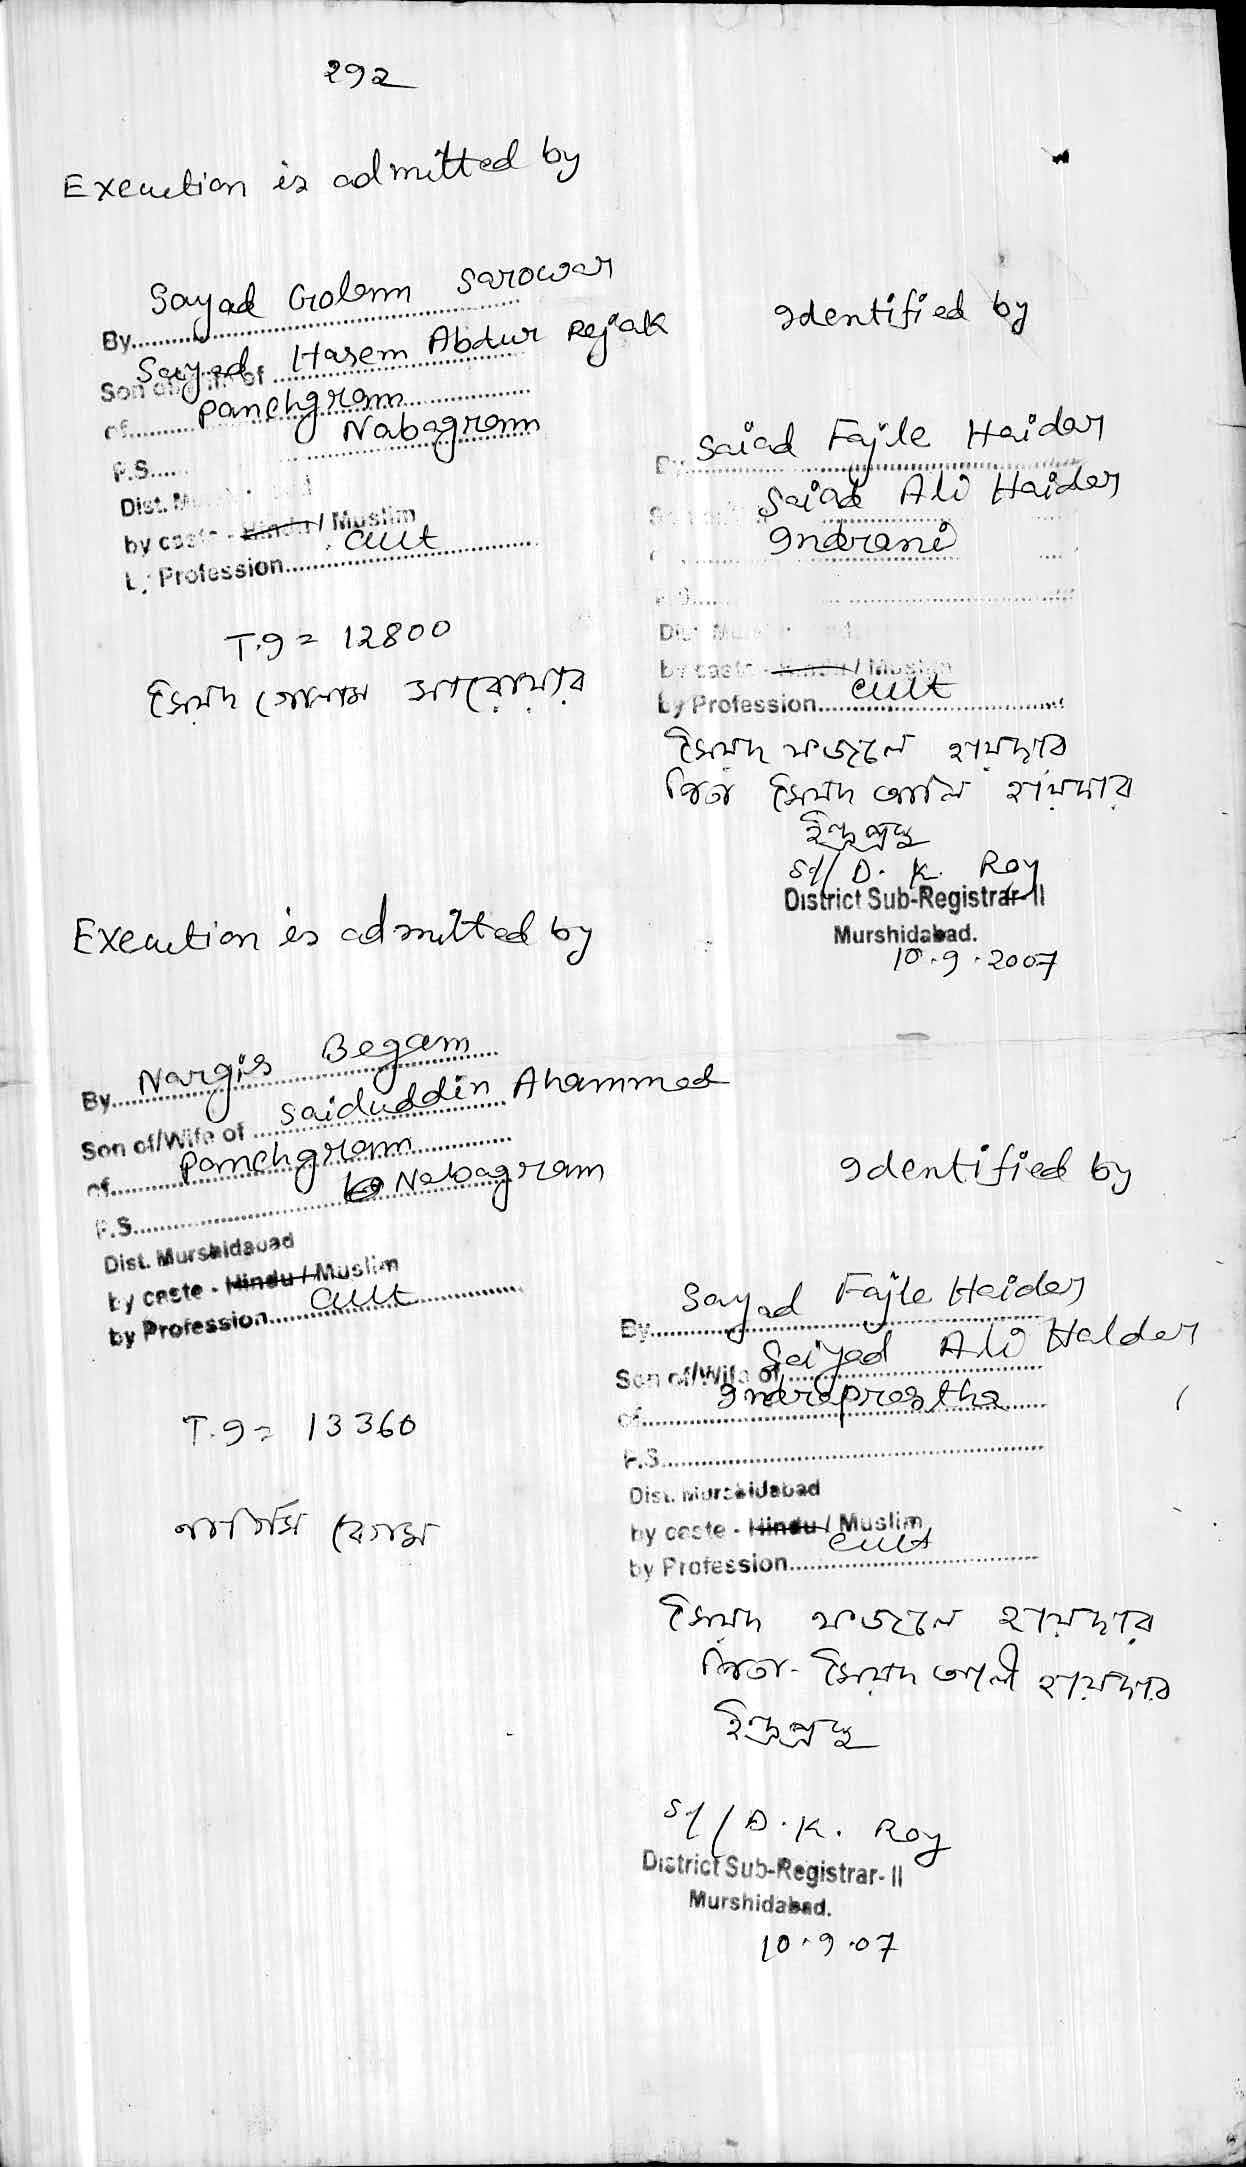 292
Execution is admitted by
By Sayad Golam Sarowar
Son of/Wife of Saiyad Hasem Abdur Rejak
of Panchgram
P.S. Nabagram
Dist. Murshidabad
by caste - Hindu / Muslim
by Profession cult
T.9 = 12800
সৈয়দ গোলাম সারোয়ার
Identified by
By Saiad Fajle Haidar
Saiad Ali Haider
Indrani
P.S.
Dist. Murshidabad
by caste - Hindu / Muslim
by Profession cult
সৈয়দ ফজলে হায়দার
পিতা সৈয়দ আলি হায়দার
ইন্দ্রপ্রস্থ
Sd/ D. K. Roy
District Sub-Registrar-II
Murshidabad.
10.9.2007
Execution is admitted by
By Nargis Begam
Son of/Wife of Saiduddin Ahammed
of Panchgram
P.S. Nabagram
Dist. Murshidabad
by caste - Hindu / Muslim
by Profession cult
T.9 = 13360
নার্গিস বেগম
Identified by
By Sayad Fajle Haider
Son of/Wife of Saiyad Ali Halder
of Indraprastha
P.S.
Dist. Murshidabad
by caste - Hindu / Muslim
by Profession cult
সৈয়দ ফজলে হায়দার
পিতা - সৈয়দ আলী হায়দার
ইন্দ্রপ্রস্থ
Sd/ D. K. Roy
District Sub-Registrar- II
Murshidabad.
10.9.07